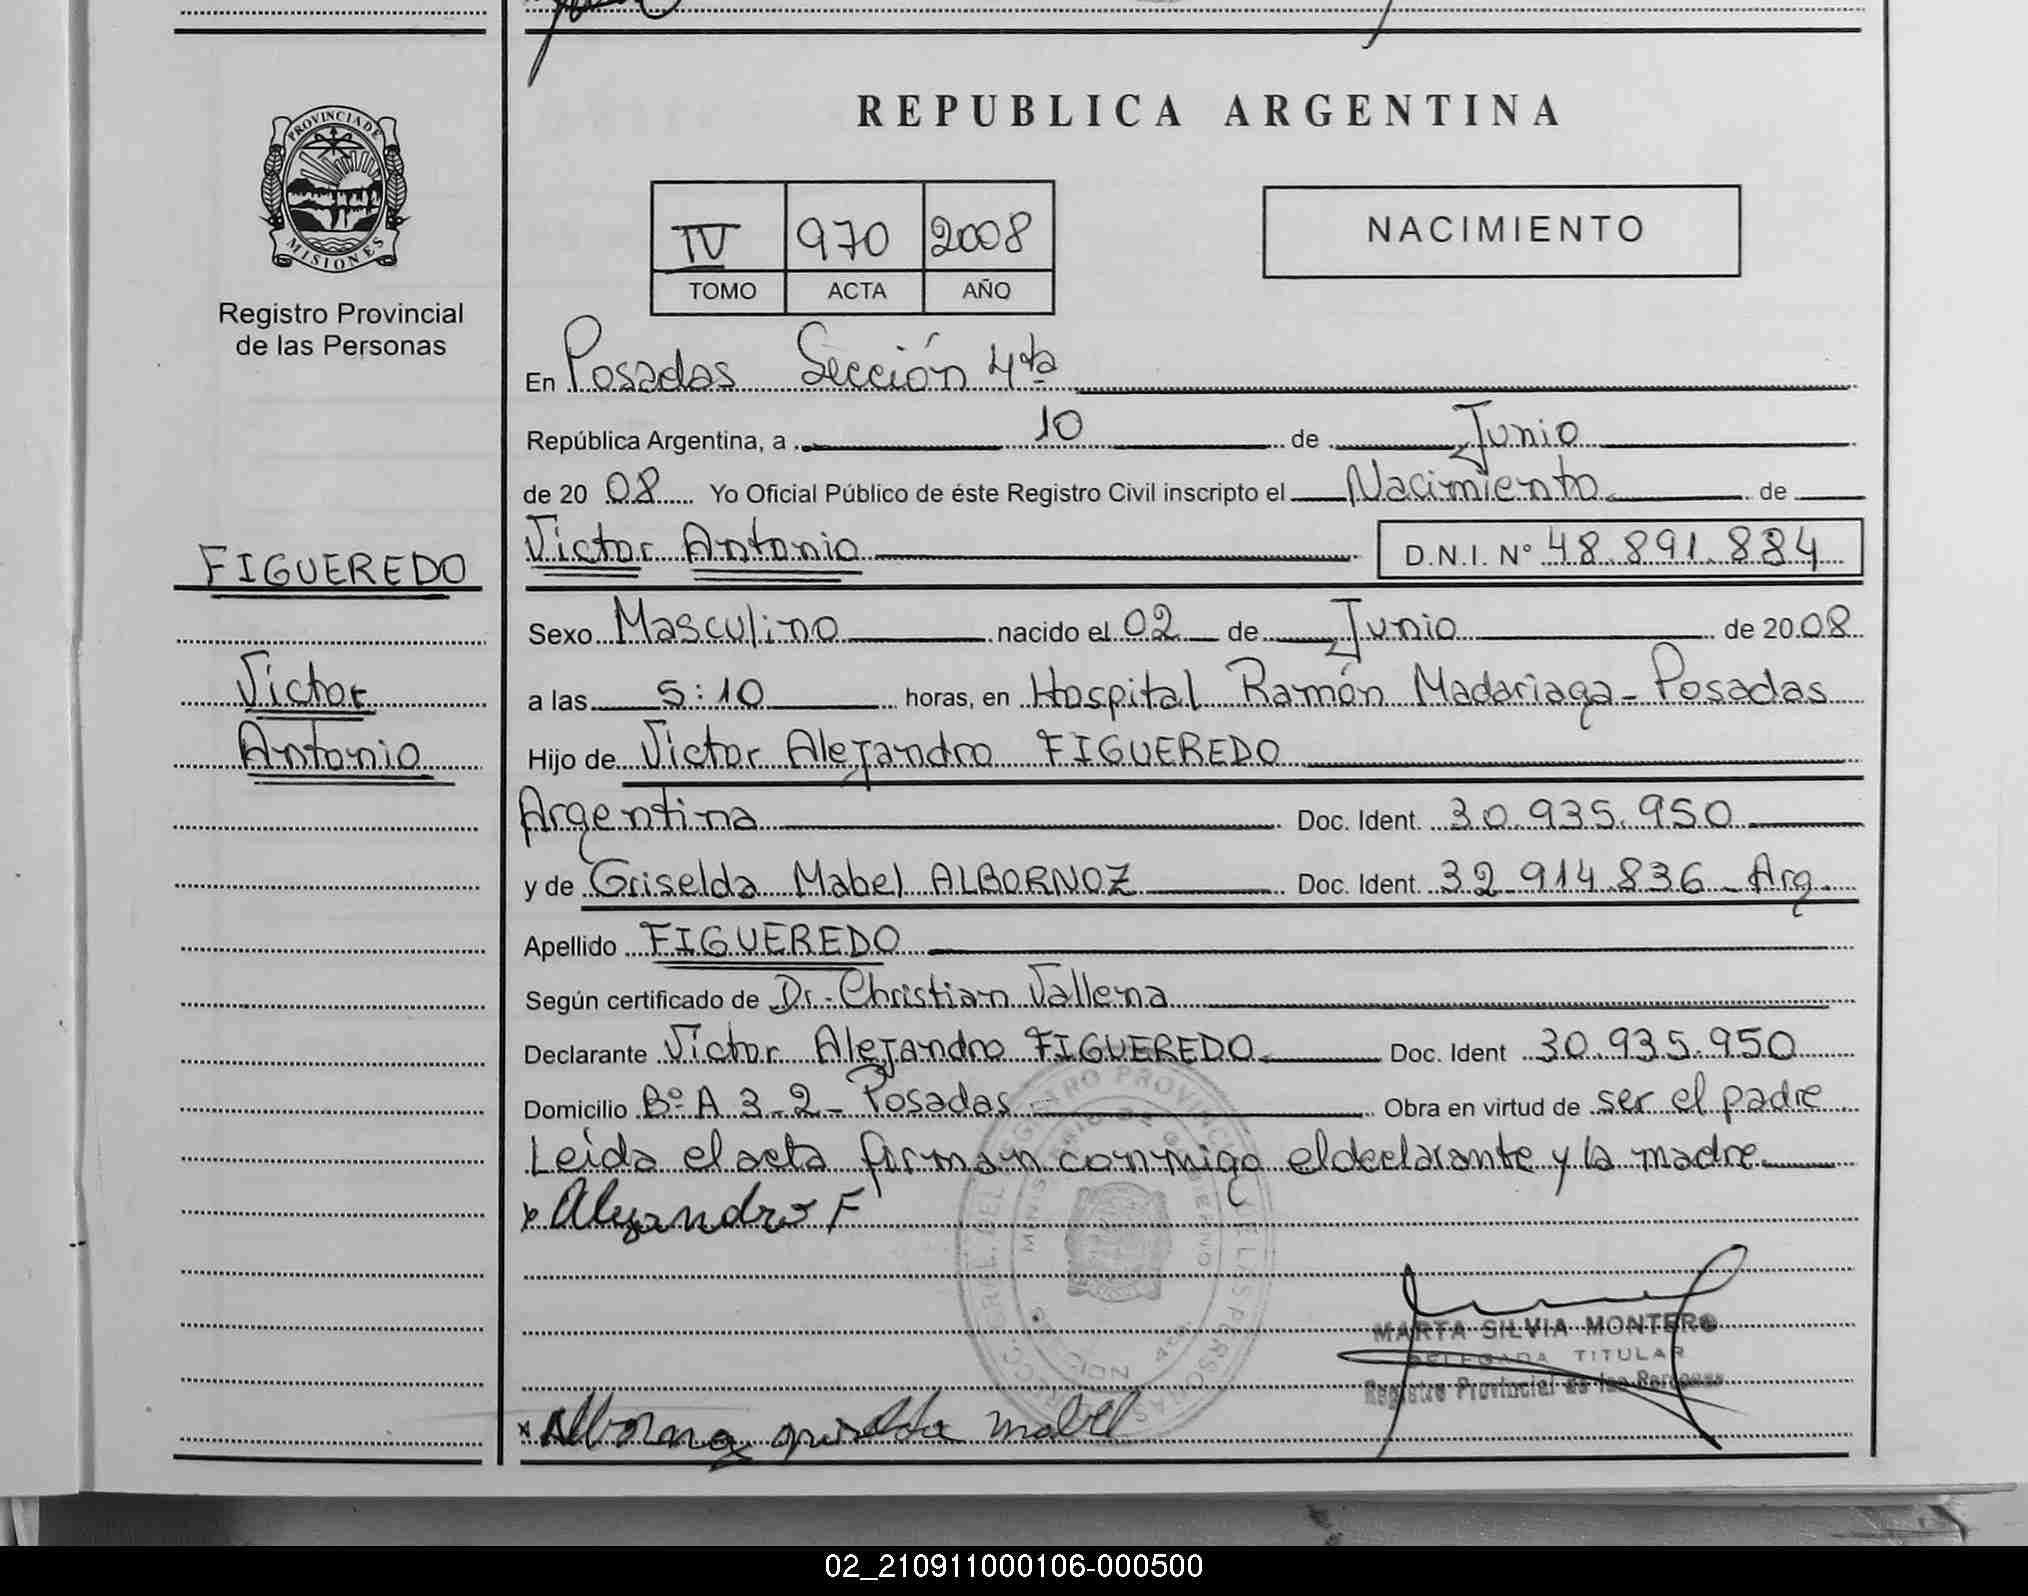 REPUBLICA ARGENTINA
PROVINCIA DE
MISIONES
Registro Provincial
de las Personas
IV 970 2008
TOMO ACTA AÑO
NACIMIENTO
En Posadas Sección 4ta
República Argentina, a 10 de Junio
de 20 08 Yo Oficial Público de éste Registro Civil inscripto el Nacimiento de
FIGUEREDO
Victor
Antonio
Victor Antonio D.N.I. Nº 48.891.884
Sexo Masculino nacido el 02 de Junio de 20 08
a las 5:10 horas, en Hospital Ramón Madariaga - Posadas
Hijo de Victor Alejandro FIGUEREDO
Argentina Doc. Ident. 30.935.950
y de Griselda Mabel ALBORNOZ Doc. Ident. 32.914.836 - Arg.
Apellido FIGUEREDO
Según certificado de Dr. Christian Vallena
Declarante Victor Alejandro FIGUEREDO Doc. Ident 30.935.950
Domicilio Bº A 3-2 - Posadas Obra en virtud de ser el padre
Leida el acta firman conmigo el declarante y la madre
x Alejandro F
MARTA SILVIA MONTERO
DELEGADA TITULAR
Registro Provincial de las Personas
x Albornoz griselda mabel
02_210911000106-000500